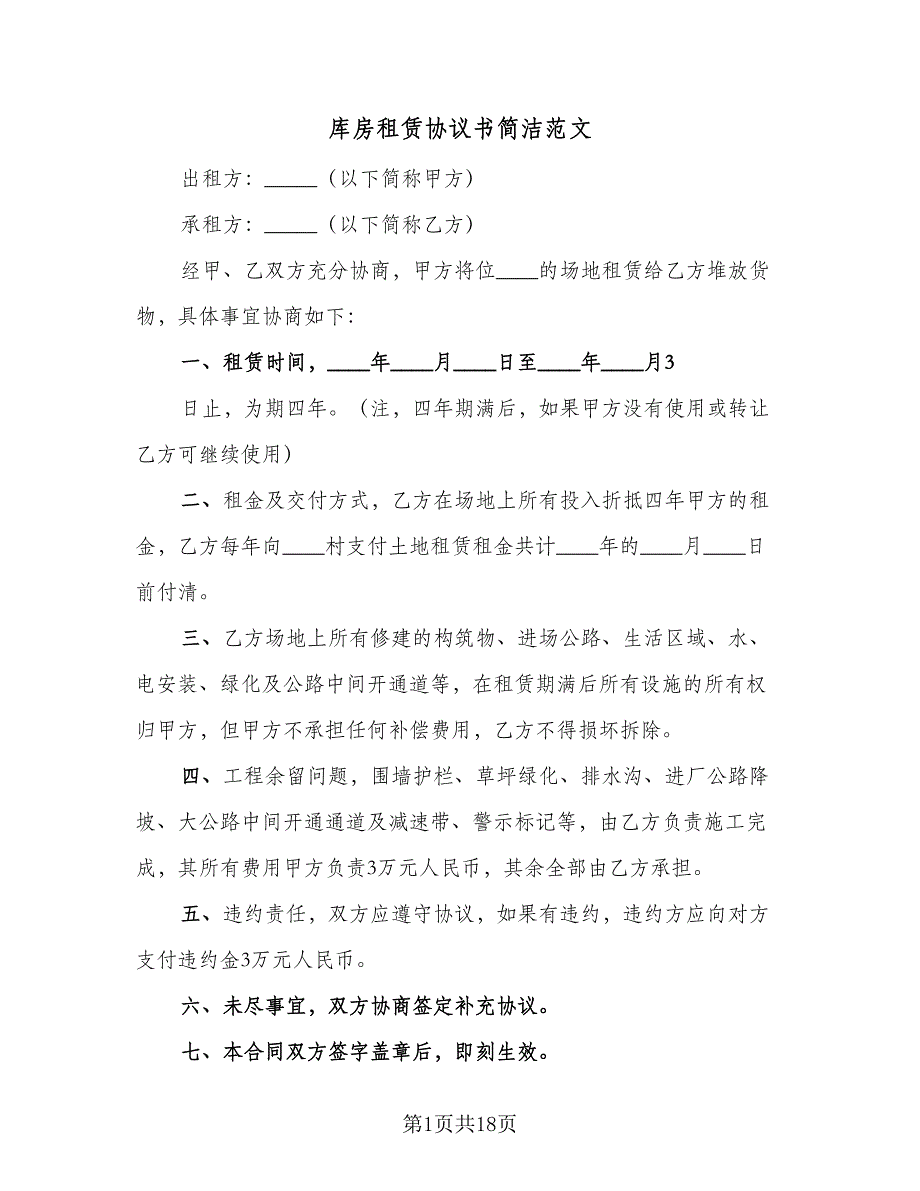 库房租赁协议书简洁范文
出租方：_____（以下简称甲方）
承租方：_____（以下简称乙方）
经甲、乙双方充分协商，甲方将位____的场地租赁给乙方堆放货
物，具体事宜协商如下：
一、租赁时间，____年____月____日至____年____月3
日止，为期四年。（注，四年期满后，如果甲方没有使用或转让
乙方可继续使用）
二、租金及交付方式，乙方在场地上所有投入折抵四年甲方的租
金，乙方每年向____村支付土地租赁租金共计____年的____月____日
前付清。
三、乙方场地上所有修建的构筑物、进场公路、生活区域、水、
电安装、绿化及公路中间开通道等，在租赁期满后所有设施的所有权
归甲方，但甲方不承担任何补偿费用，乙方不得损坏拆除。
四、工程余留问题，围墙护栏、草坪绿化、排水沟、进厂公路降
坡、大公路中间开通通道及减速带、警示标记等，由乙方负责施工完
成，其所有费用甲方负责3万元人民币，其余全部由乙方承担。
五、违约责任，双方应遵守协议，如果有违约，违约方应向对方
支付违约金3万元人民币。
六、未尽事宜，双方协商签定补充协议。
七、本合同双方签字盖章后，即刻生效。
第1页共18页